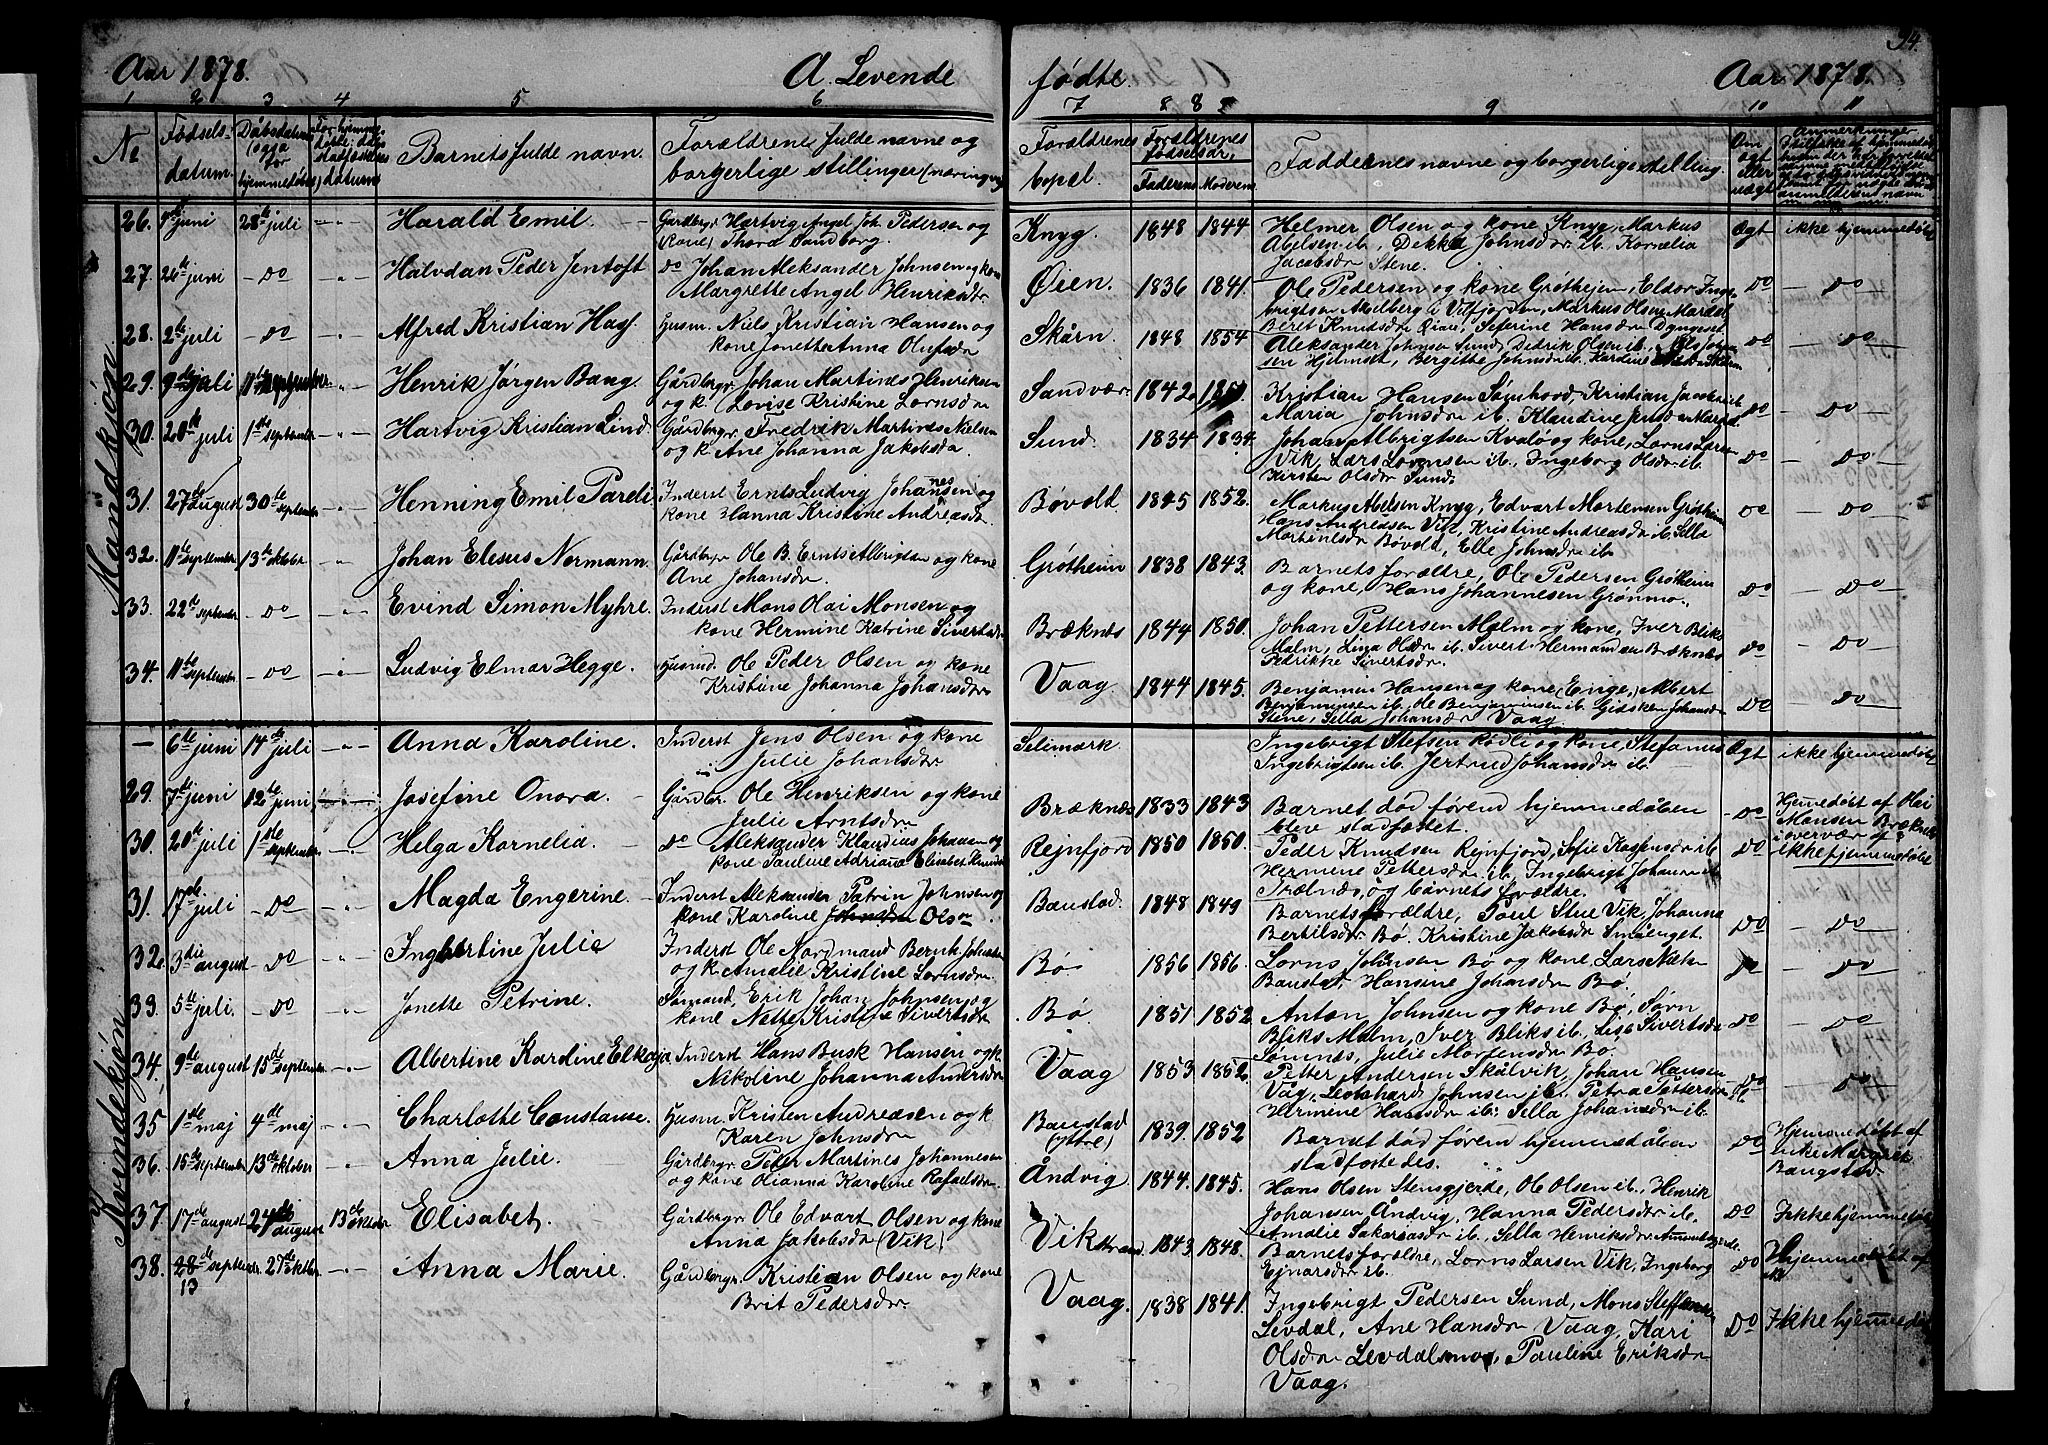 34.
Aar 1878. A. Levende
fødte. Aar 1878.
1 2 3 4 5 6
7 8 8 9 10 11
No Fødsels- datum. Daabsdatum (ogsaa for hjemmedøbte) datum Barnets fulde navn. Forældrenes fulde navne og borgerlige stillinger (næring)
Forældrenes bopel. Forældrenes fødselsår, Faderens Moderens Faddernes navne og borgerlige stilling. Om ægt eller uægt Anmerkninger
Mandkjøn
26. juni 28de juli - " - Harald Emil. Gårdbrgr Hartvig Angel Joh. Pedersen og
(kone) Thora Sandborg.
Knyg. 1848 1844 Helmer Olsen og kone Knyg, Markus
Abelsen ib., Dekka Johnsdr ib. Kornelia
Jacobsdr Stene. Ægt ikke hjemmedøbt
27. 26de juni - Do - " - Halvdan Peder Jentoft do Johan Aleksander Johnsen og kone
Margrette Angel Henriksdtr
Øien. 1836 1841. Ole Pedersen og kone Grøtheim, Eldor Inge-
brigtsen Akselberg i Vilfjorden, Markus Olsen
Beret Knudsdr Qian, Seferine Hansdr Dyngeset Do Do
28. 2de juli - Do - " - Alfred Kristian Hasf. Husm. Niels Kristian Hansen og
kone Jonetha Anna Olufsdr
Skårn 1848 1854 Aleksander Johnsen Sund, Didrik Olsen ib.,
sen Hjelmset, Bergithe Johnsdr ib. Do Do
29. 9de juli 11te september " Henrik Jørgen Bang. Gårdbrgr Johan Martines Henriksen
og k. Lovise Kristine Lornsdr
Sandvær 1842. Kristian Hansen Sømhovd, Kristian Jacobsen ib
Maria Johnsdr ib. Klaudine Do Do
30. 20de juli 1ste september - " - Hartvig Kristian Lind. Gårdbrgr Fredrik Martines Nielsen
og k. Ane Johanna Jakobsdr.
Sund. 1834 1834. Johan Albrigtsen Kvalø og kone, Lorns Søren
Vik, Lars Lorensen ib., Ingeborg Olsdr ib.
Kirsten Olsdr Sund. Do Do
31. 27de august 30te september - " - Henning Emil Pareli Inderst Ernts Ludvig Johannesen og
kone Hanna Kristine Andreasdr.
Bøvold 1845 1852. Markus Abelsen Knyg, Edvart Mortensen Grøtheim
Hans Andreasen Vik, Kristine Andreasdr ib. Silla
Martinesdr Bøvold, Elle Johnsdr ib. Do Do
32. 11te september 13de oktober - " - Johan Elesus Normann. Gårdbrgr Ole B. Ernts Albrigtsen og kone
Ane Johansdr.
Grøtheim 1838 1843. Barnets forældre, Ole Pedersen Grøtheim
og kone, Hans Johannesen Grønmo. Do Do
33. 22de september - Do - " - Evind Simon Myhre. Inderst Mons Olai Monsen og
kone Hermine Katrine Sivertsdr
Bræknes 1844 1850. Johan Pettersen Malm og kone, Iver Bliks
Malm, Lina Olsdr ib. Sivert Hermandsen Bræknes
Fedrikke Sivertsdr. Do Do
34. 11te september - Do - " - Ludvig Elmar Hegge. Husmd. Ole Peder Olsen og kone
Kristine Johanna Johansdr.
Vaag. 1844 1845. Benjamin Hansen og kone (Enge,) Albert
Benjeminsen ib. Ole Benjaminsen ib. Gidsken Johansdr
Stene, Silla Johansdr Vaag. Do Do
Kvindekjøn
— 6te juni 14de juli - " - Anna Karoline. Inderst Jens Olsen og kone
Julie Johansdr
Selimark. Ingebrigt Stefsen Rødli og kone, Stefanus
Ingebrigtsen ib. Jertrud Johansdr ib. Ægt ikke hjemmedøbt
29. 7de juni 12te juni - " - Josefine Onora. Gårdbr. Ole Henriksen og kone
Julie Arntsdr
Bræknes 1833 1843 Barnet død førend hjemmedåben
blev stadfæstet. Do Hjemedøbt af
Monsen Bræknes
i overvær af ?
30. 20de juli 1ste september - " - Helga Kornelia. do Aleksander Klaudius Johansen og
kone Pauline Adriana Elisabet Knudsdr
Rejnfjord 1850 1850. Peder Knudsen Rejnfjord, Sofie Kaspersdr ib.
Hermine Pettersdr ib., Ingebrigt Johansen ib
Trælnes, og barnets forældre. Do ikke hjemmedøbt
31. 17de juli - Do - " - Magda Engerine. Inderst Aleksander Patrin Johnsen og
kone Karoline Olsdr
Baustad. 1848 1849 Barnets forældre, Poul Stue Vik, Johanna
Bertilsdr Bø. Kristine Jakobsdr Småenget. Do Do
32. 3die august - Do - " Ingbertine Julie Inderst Ole Nordmand Bernt Johnsen
og k. Amalie Kristine Lornsdr.
Bø. 1856 1856. Lorns Johansen Bø og kone, Lars Næten
Baustad, Hansine Johansdr Bø. Do
33. 5te juli. Do - " - Jonette Petrine. Sømand, Erik Johan Johnsen og
kone Nette Kristine Sivertsdr
Bø. 1851 1852. Anton Johnsen og kone Bø, Sørn
Bliks Malm, Iver Bliks ib. Lise Sivertsdr
Sømnes, Julie Mortensdr Bø. Do Do
34. 9de august 15de september - " - Albertine Kardine Elkaja Inderst Hans Busk Hansen og k.
Nikoline Johanna Andersdr
Vaag 1853 1852. Petter Andersen Skålvik, Johan Hansen
Våg, Leonhard Johnsen ib., Petra Pettersdr
Hermine Hansdr ib. Silla Johansdr ib. Do Do
35 1ste maj 4de maj - " - Charlotte Constanse. Husm. Kristen Andreasen og k
Karen Johnsdr
Baustad (ytre) 1839. 1852 Barnet død førend hjemmedåben
stadfæstedes. Do Hjemmedøbt af
enke Margrete
Baugstad.
36. 15de september 13de oktober - " - Anna Julie. Gårdbrgr Peter Martines Johannesen
og kone Olianna Karoline Rafaelsdr.
Åndvig 1844. 1845. Hans Olsen Stensgjerde, Ole Olsen ib., Henrik
Johansen Åndvig, Hanna Pedersdr ib.
Amalie Sakariasdr ib., Silla Henriksdr Do Ikke hjemmedøbt
37. 17de august 24de august 13de oktober Elisabet. Gårdbrgr Ole Edvart Olsen og kone
Anna Jakobsdr (Vik)
Vikstrand. 1843 1848. Barnets forældre, Lorns Larsen Vik, Ingeborg
Ejnarsdr ib. Do Hjemmedøbt af
38. 28de september 27de oktbr. - " - Anna Marie. Gårdbrgr. Kristian Olsen og kone
13 Brit Pedersdr.
Vaag. 1838 1841. Ingebrigt Pedersen Sund, Mons Steffensen
Levdal, Ane Hansdr Vaag, Kari
Olsdr Levdalsmo, Pauline Eriksdr
Vaag. Do Ikke hjemmedøbt